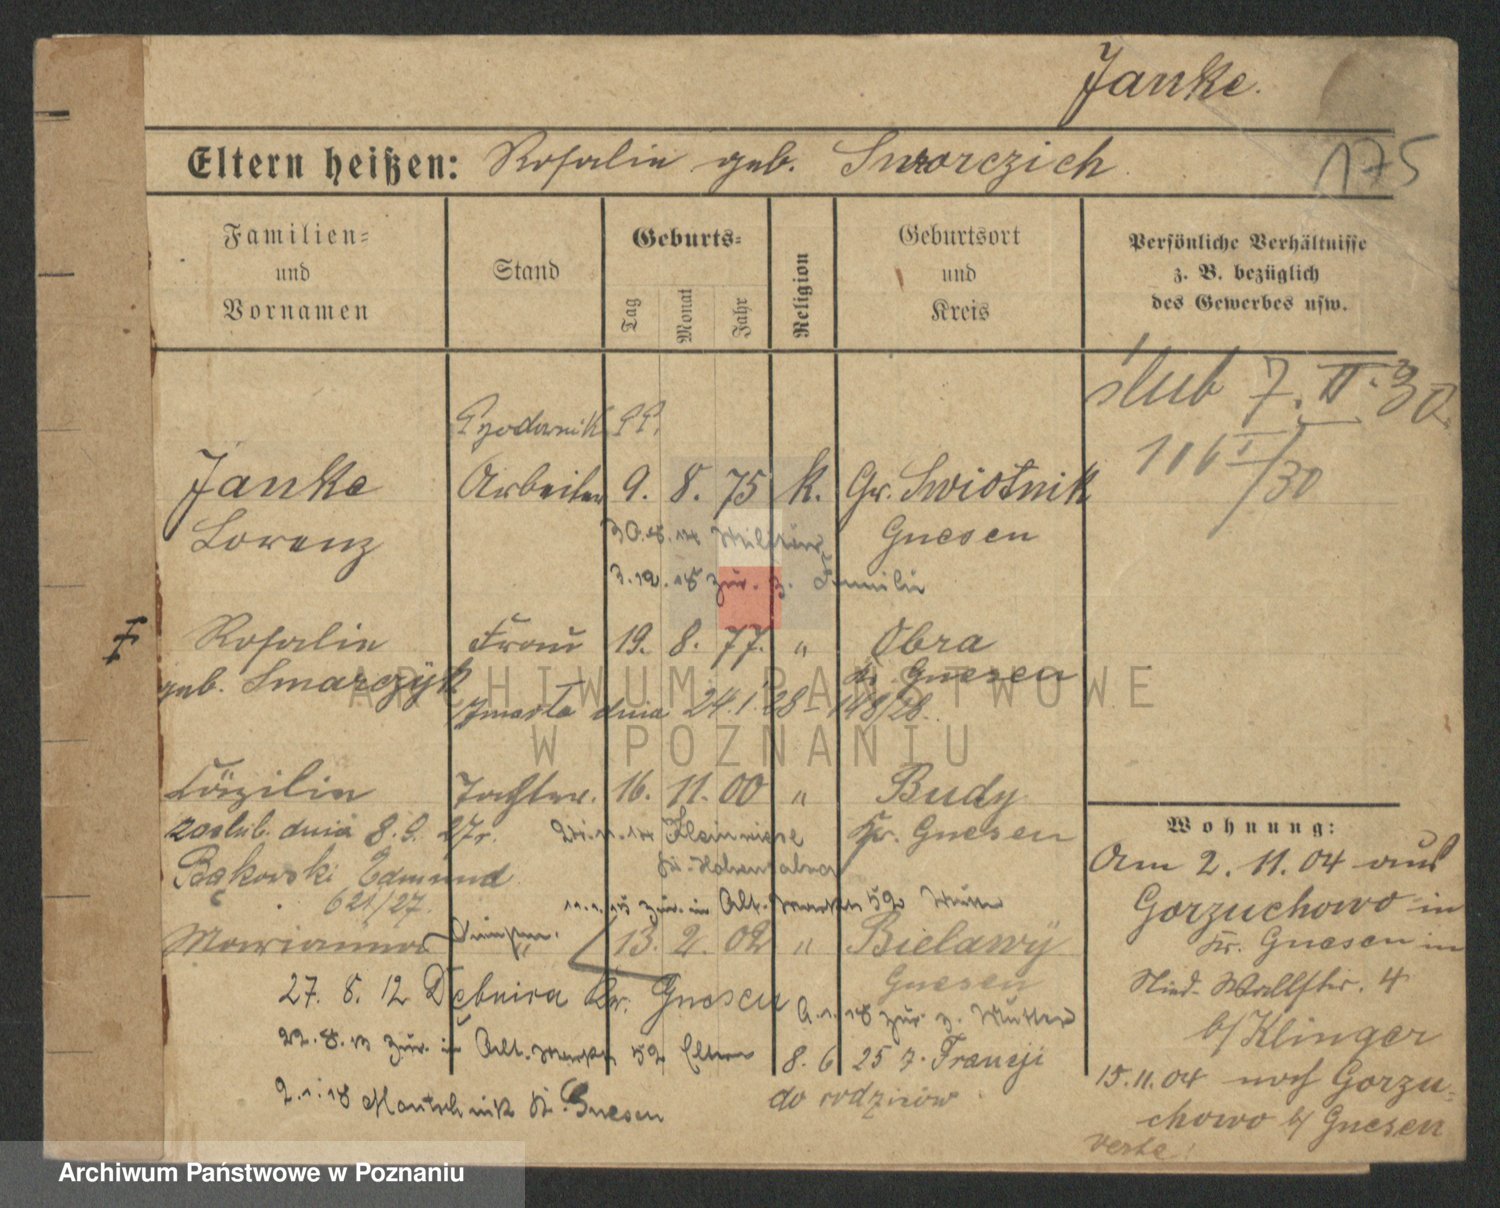 Janke.
175
Eltern heißen: Rosalie geb. Smorczich
Familien-
und
Vornamen
Stand
Geburts-
Tag
Monat
Jahr
Religion
Geburtsort
und
Kreis
Persönliche Verhältnisse
z. B. bezüglich
des Gewerbes usw.
ślub 7. II. 30
116 I/30
Janke Arbeiter 9. 8. 75 k. Gr. Swiotnik
Lorenz Gnesen
30.8.14 Militär
3.12.18 zur. z. Familie
F
Rosalie Frau 19. 8. 77. " Obra
geb. Smarczyk Kr. Gnesen
Zmarła dnia 24.1.28 - 148/28.
Cäzilie Tochter. 16. 11. 00 " Budy
zaślub. dnia 8.9.27r. Kr. Gnesen
Bąkowski Edmund
621/27.
zur. in Alt. Markt 52 Mutter
Marianna 13. 2. 02 " Bielawy
Gnesen
27. 8. 12 Dębnica Kr. Gnesen
9.1.18 zur z. Mutter
22.8.13 zur. in Alt. Markt 52 Eltern
8. 6 25 z. Francji
do rodziców
2.1.18 Kr. Gnesen
Wohnung:
Am 2. 11. 04 aus
Gorzuchowo in
Kr. Gnesen in
Nied. Wallstr. 4
b/ Klinger
15.11.04 nach Gorzu-
chowo b/ Gnesen
verte!
ARCHIWUM PAŃSTWOWE
W POZNANIU
Archiwum Państwowe w Poznaniu